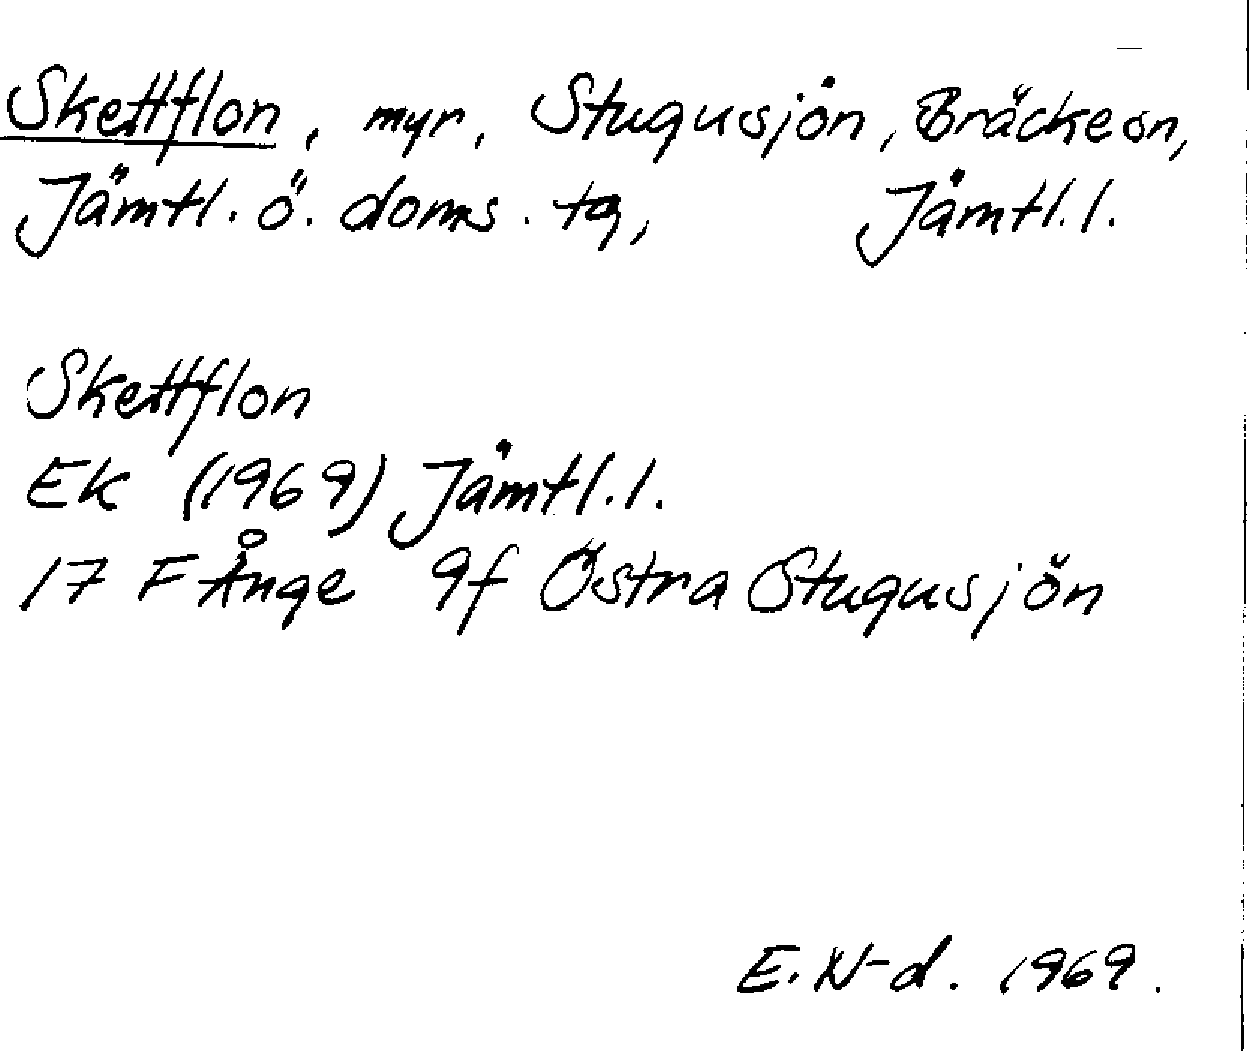 Skettflon, myr, Stugusjön, Bräcke sn,
Jämtl. ö. doms. tg, Jämtl. l.
Skettflon
EK (1969) Jämtl. l.
17 F Ånge 9f Östra Stugusjön
E. N-d. 1969.